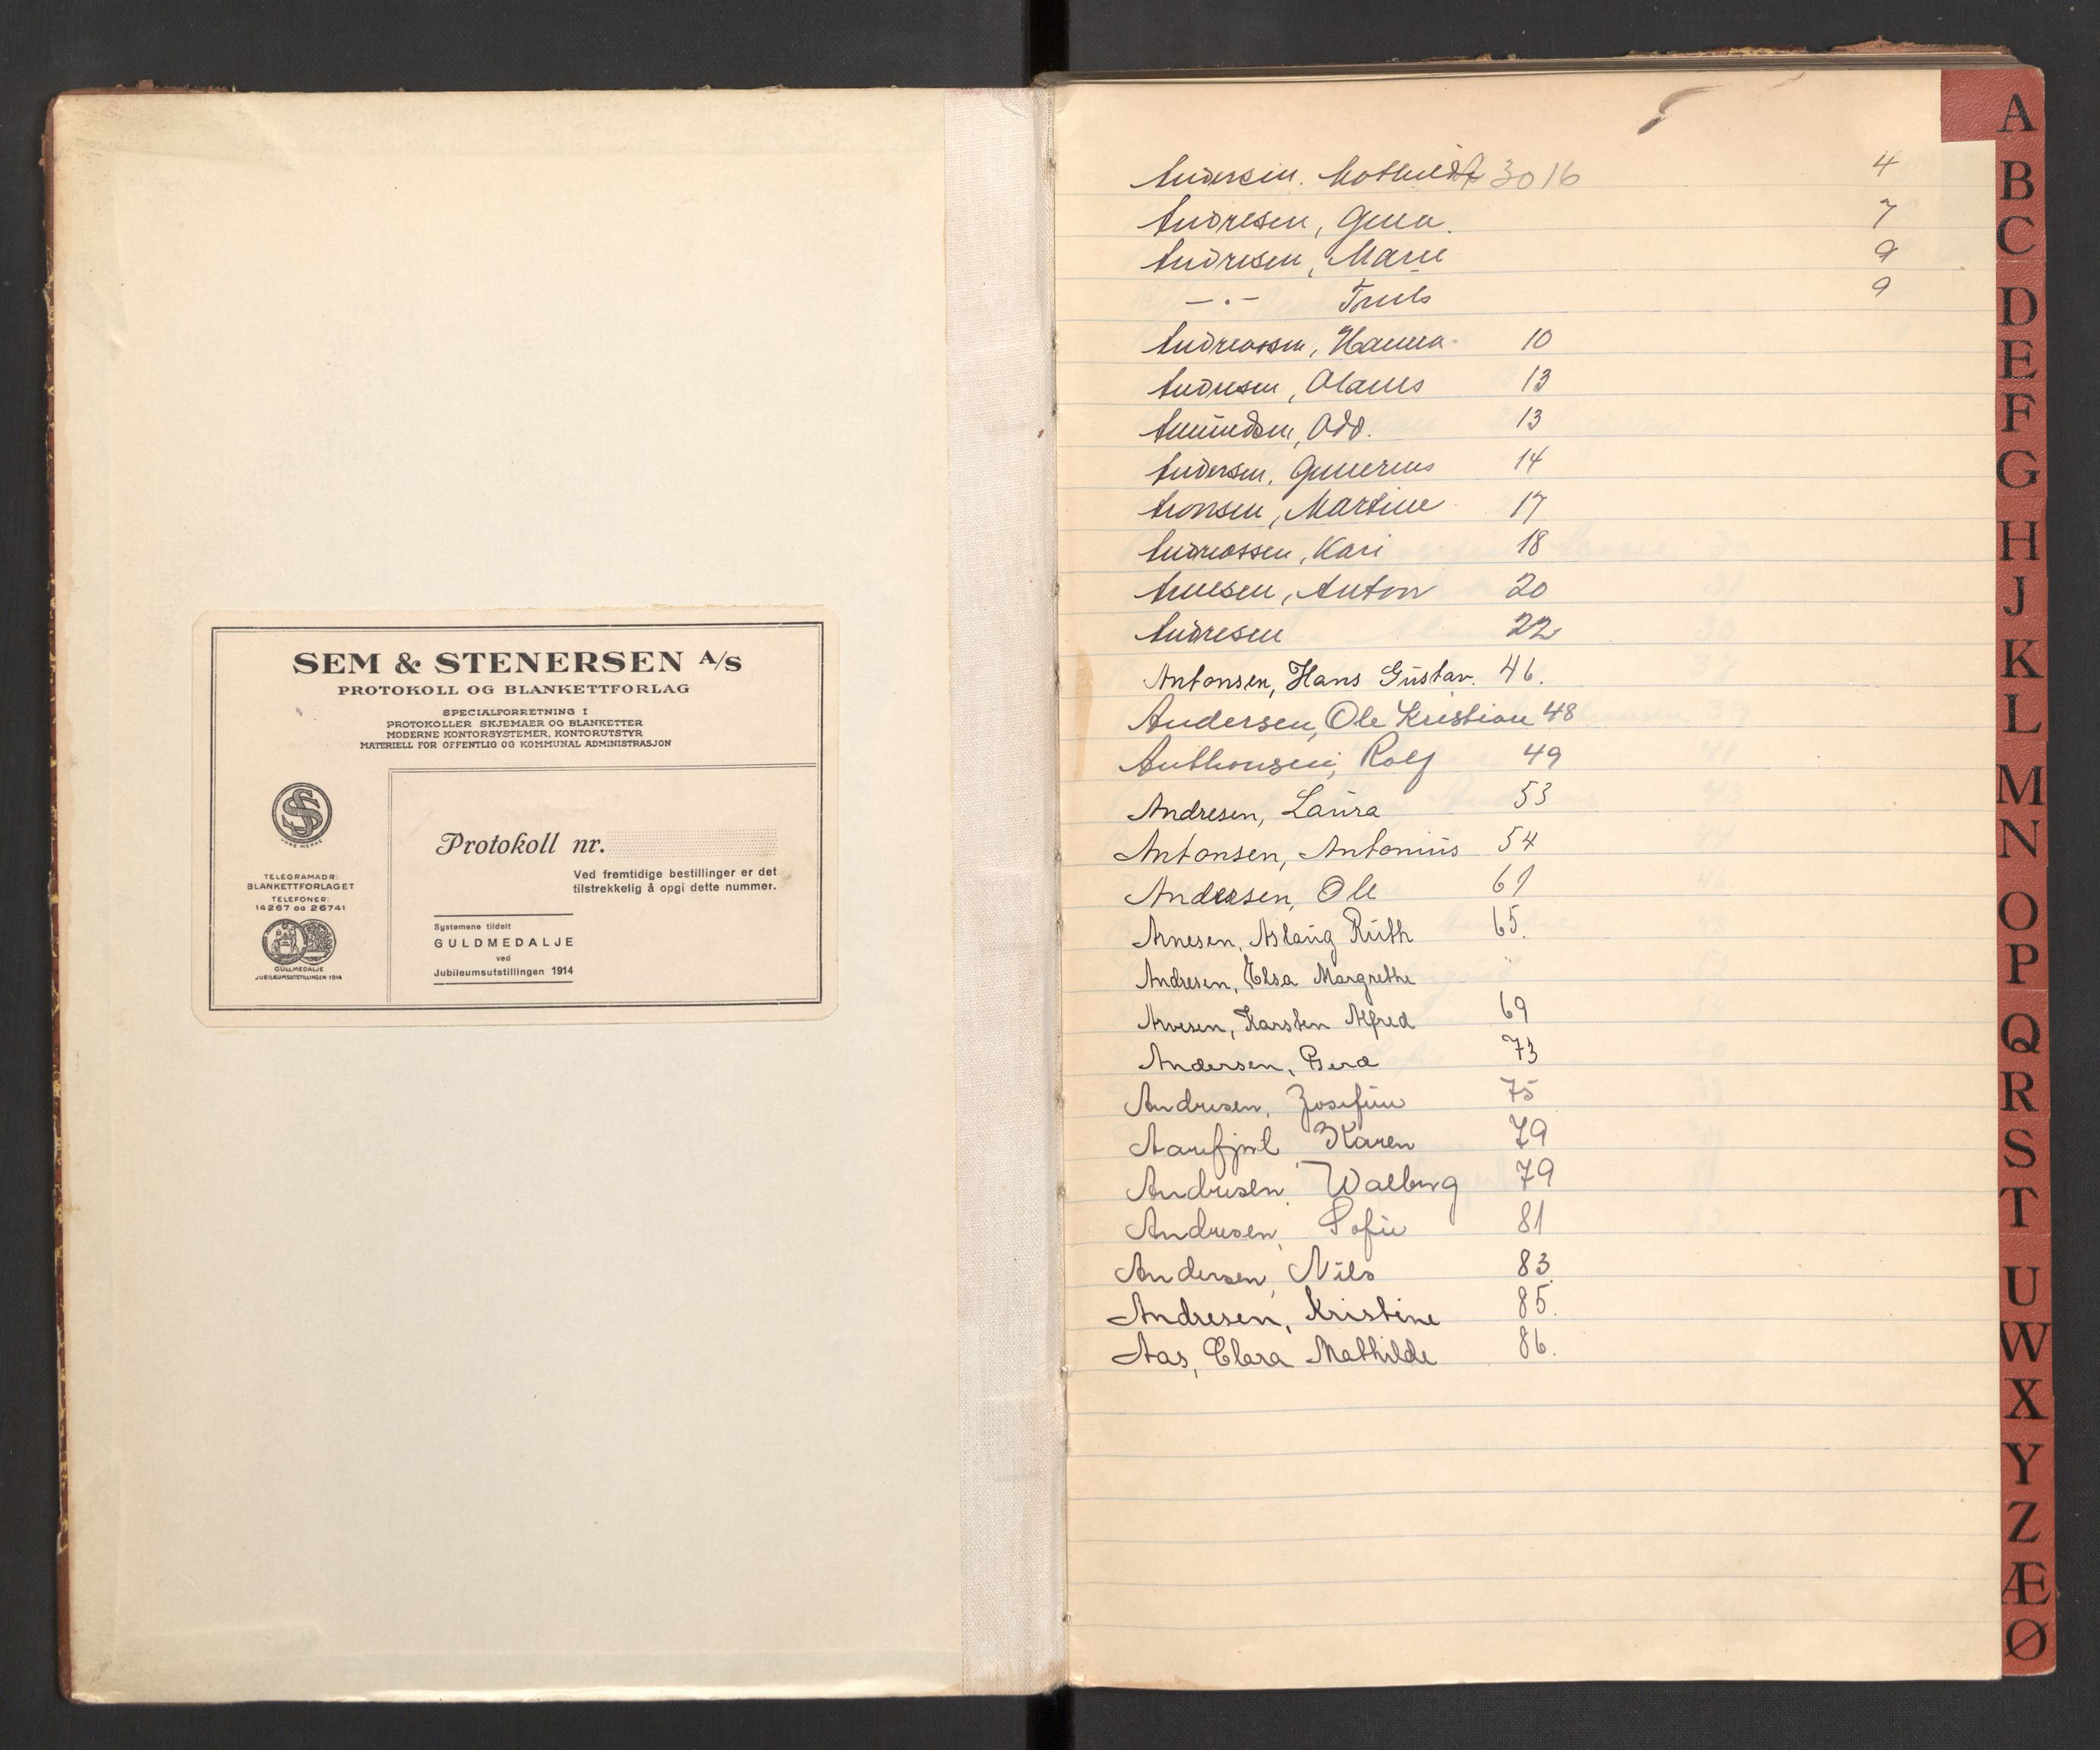 SEM & STENERSEN A/S
PROTOKOLL OG BLANKETTFORLAG
SPECIALFORRETNING I
PROTOKOLLER SKJEMAER OG BLANKETTER
MODERNE KONTORSYSTEMER, KONTORUTSTYR
MATERIELL FOR OFFENTLIG OG KOMMUNAL ADMINISTRASJON
VARE MERKE
TELEGRAMADR:
BLANKETTFORLAGET
TELEFONER:
14267 OG 26741
GULLMEDALJE
JUBILÆUMSUTSTILLINGEN 1914
Protokoll nr.
Ved fremtidige bestillinger er det
tilstrekkelig å opgi dette nummer.
Systemene tildelt
GULDMEDALJE
ved
Jubileumsutstillingen 1914
Andersen. Mathilde 3016 4
Andresen, Gina. 7
Andresen, Marie 9
— . — Truls 9
Andreassen, Hanna 10
Andresen, Olaus 13
Amundsen, Odd. 13
Andersen, Gunerius 14
Aronsen, Martine 17
Andreassen, Kari 18
Arnesen, Anton 20
Andresen 22
Antonsen, Hans Gustav. 46.
Andersen, Ole Kristian 48
Anthonsen, Rolf 49
Andresen, Laura 53
Antonsen, Antonius 54
Andersen, Ole 61
Arnesen, Aslaug Ruth 65.
Andresen, Elsa Margrethe
Arvesen, Karsten Alfred 69
Andersen, Gerd 73
Andresen, Josefine 75
Karen 79
Andresen, Walborg 79
Andresen, Sofie 81
Andersen, Nils 83.
Andresen, Kristine 85.
Aas, Clara Mathilde 86.
A
B
C
D
E
F
G
H
J
K
L
M
N
O
P
Q
R
S
T
U
W
X
Y
Z
Æ
Ø